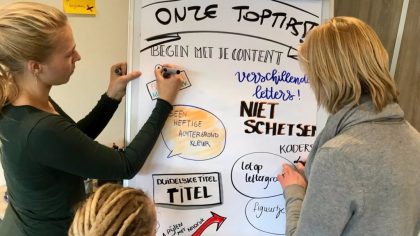 ONZE TOPTIPS!
BEGIN MET JE CONTENT
verschillende
letters!
NIET
SCHETSEN
GEEN
HEFTIGE
ACHTERGROND
KLEUR
KADERS
DUIDELIJKE TITEL
TITEL
let op
lettergrootte
figuurtjes
PIJLEN